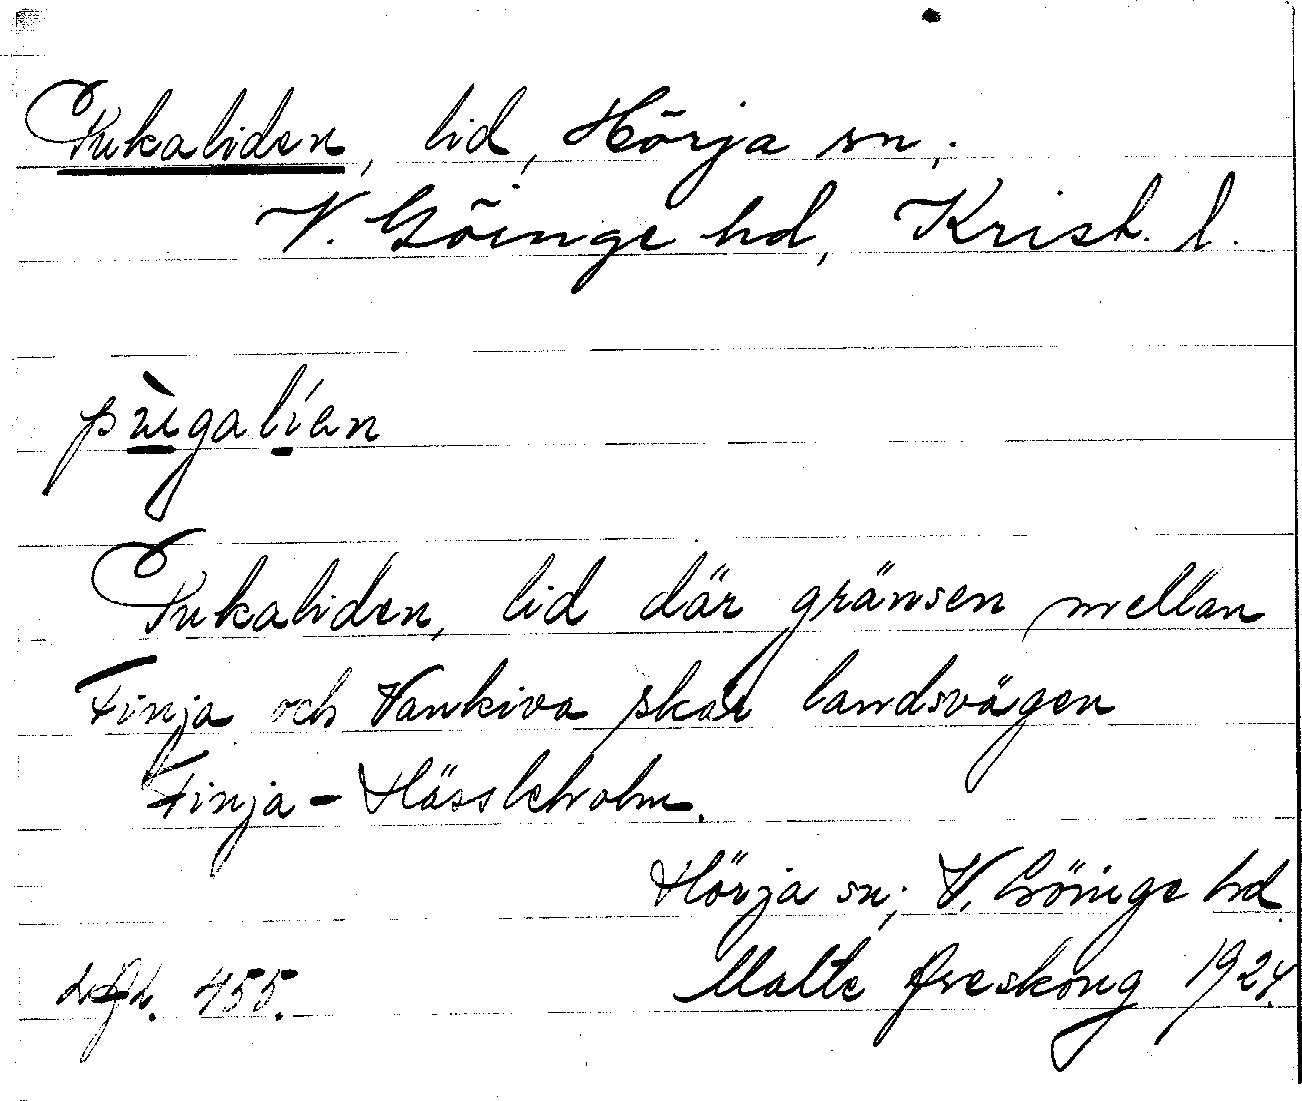 Pukaliden, lid, Hörja sn,
V. Göinge hd, Krist. l.
pùgalíen
Pukaliden, lid där gränsen mellan
Finja och Vankiva skär landsvägen
Finja - Hässleholm.
Hörja sn; V. Göinge hd.
455. Malte Areskoug 1924.